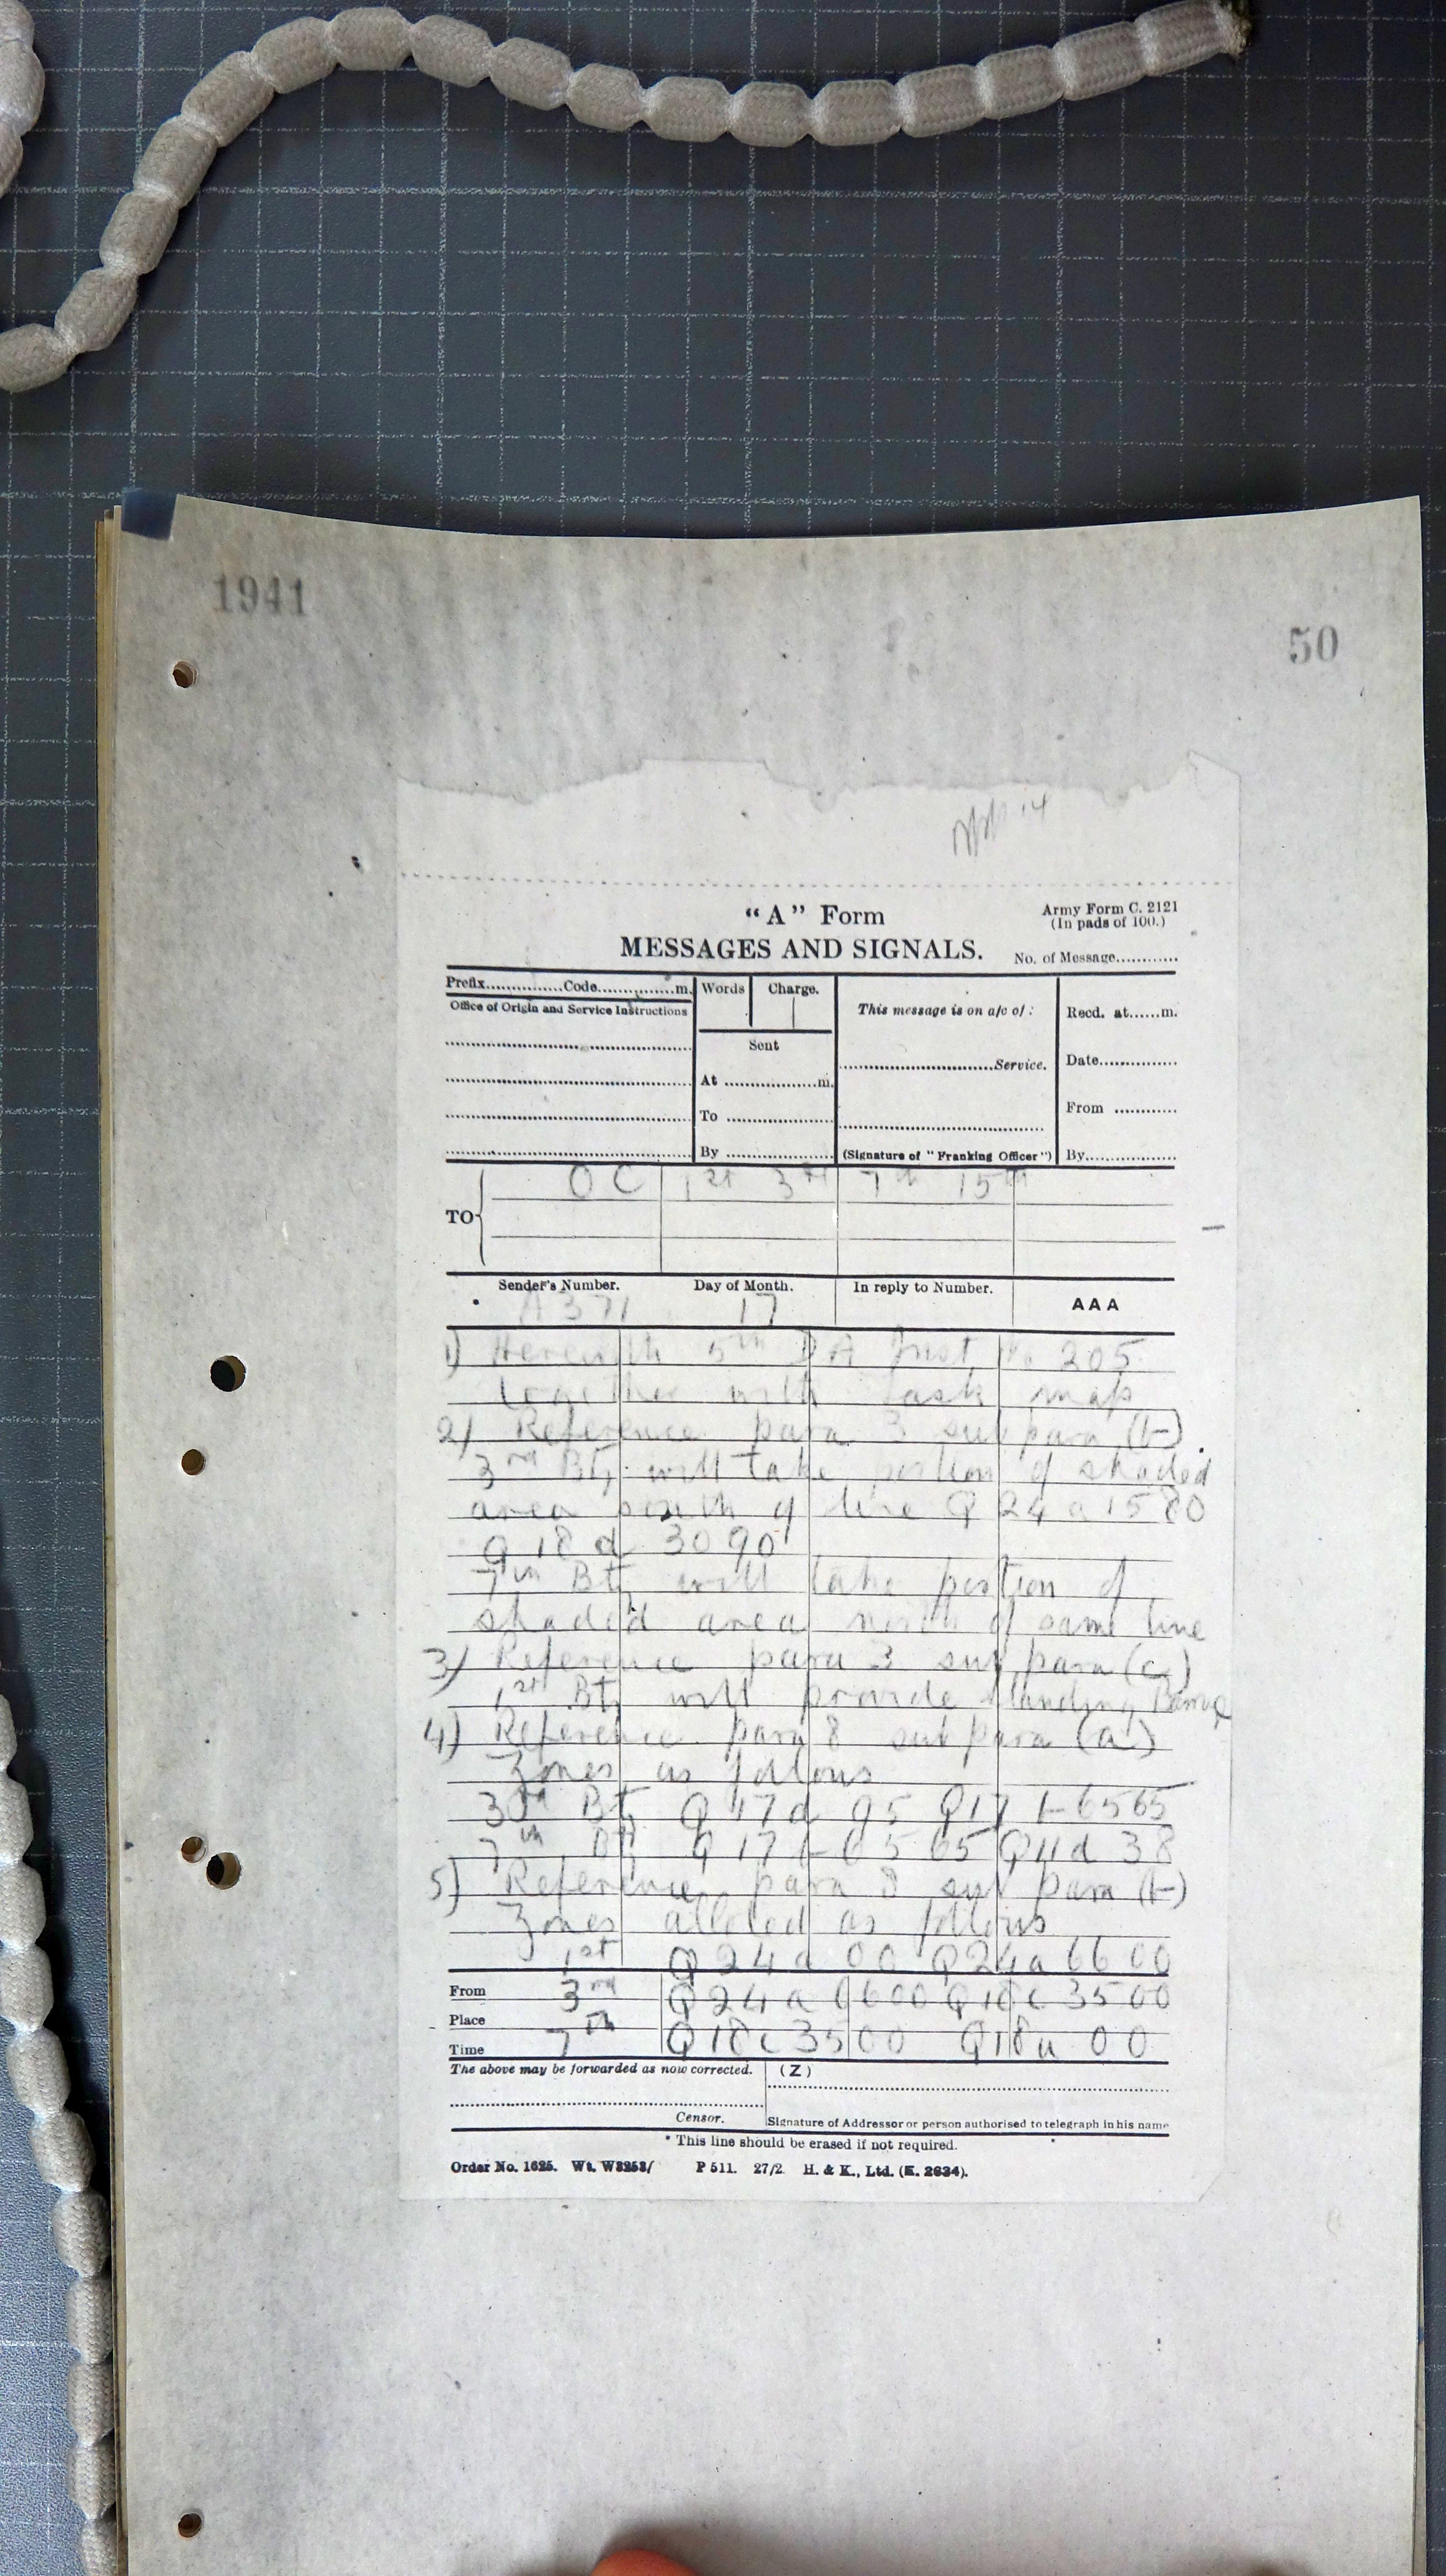 1941
50
App 14
“A” Form
Army Form C. 2121
(In pads of 100.)
MESSAGES AND SIGNALS.
No. of Message............
Prefix..............Code..............m.
Words
Charge.
Office of Origin and Service Instructions
This message is on a/c of:
Recd. at......m.
Sent
Date..............
....................Service.
At ................m.
From ............
To ................
By ................
(Signature of "Franking Officer")
By.................
OC 1st 3rd 7th 15th
TO
Sender's Number.
Day of Month.
In reply to Number.
AAA
A 371
17
1) Herewith 5th DA Inst No 205
together with task map
2) Reference para 3 sub para (b)
3rd Bty will take portion of shaded
area south of line Q 24 a 1580
Q 18 d 3090
7th Bty will take portion of
shaded area north of same line
3) Reference para 3 sub para (c)
1st Bty will provide standing Barrage
4) Reference para 8 sub para (a)
Zones as follows
3rd Bty Q 17 d 95 Q 17 b 6565
7th Bty Q 17 b 65 65 Q 11 d 38
5) Reference para 8 sub para (b)
Zones alloted as follows
1st Q 24 d 00 Q 24 a 66 00
From
3rd Q 24 a 6600 Q 18 c 3500
Place
7th Q 18 c 3500 Q 18 a 00
Time
The above may be forwarded as now corrected.
(Z)
Censor.
Signature of Addressor or person authorised to telegraph in his name
* This line should be erased if not required.
Order No. 1625. Wt. W3253/ P 511. 27/2 H. & K., Ltd. (E. 2634).